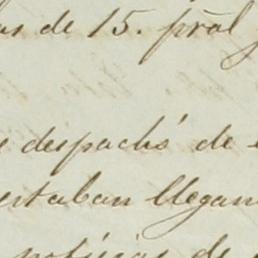 de 15. pral
despachó de
estaban llegan
noticias de